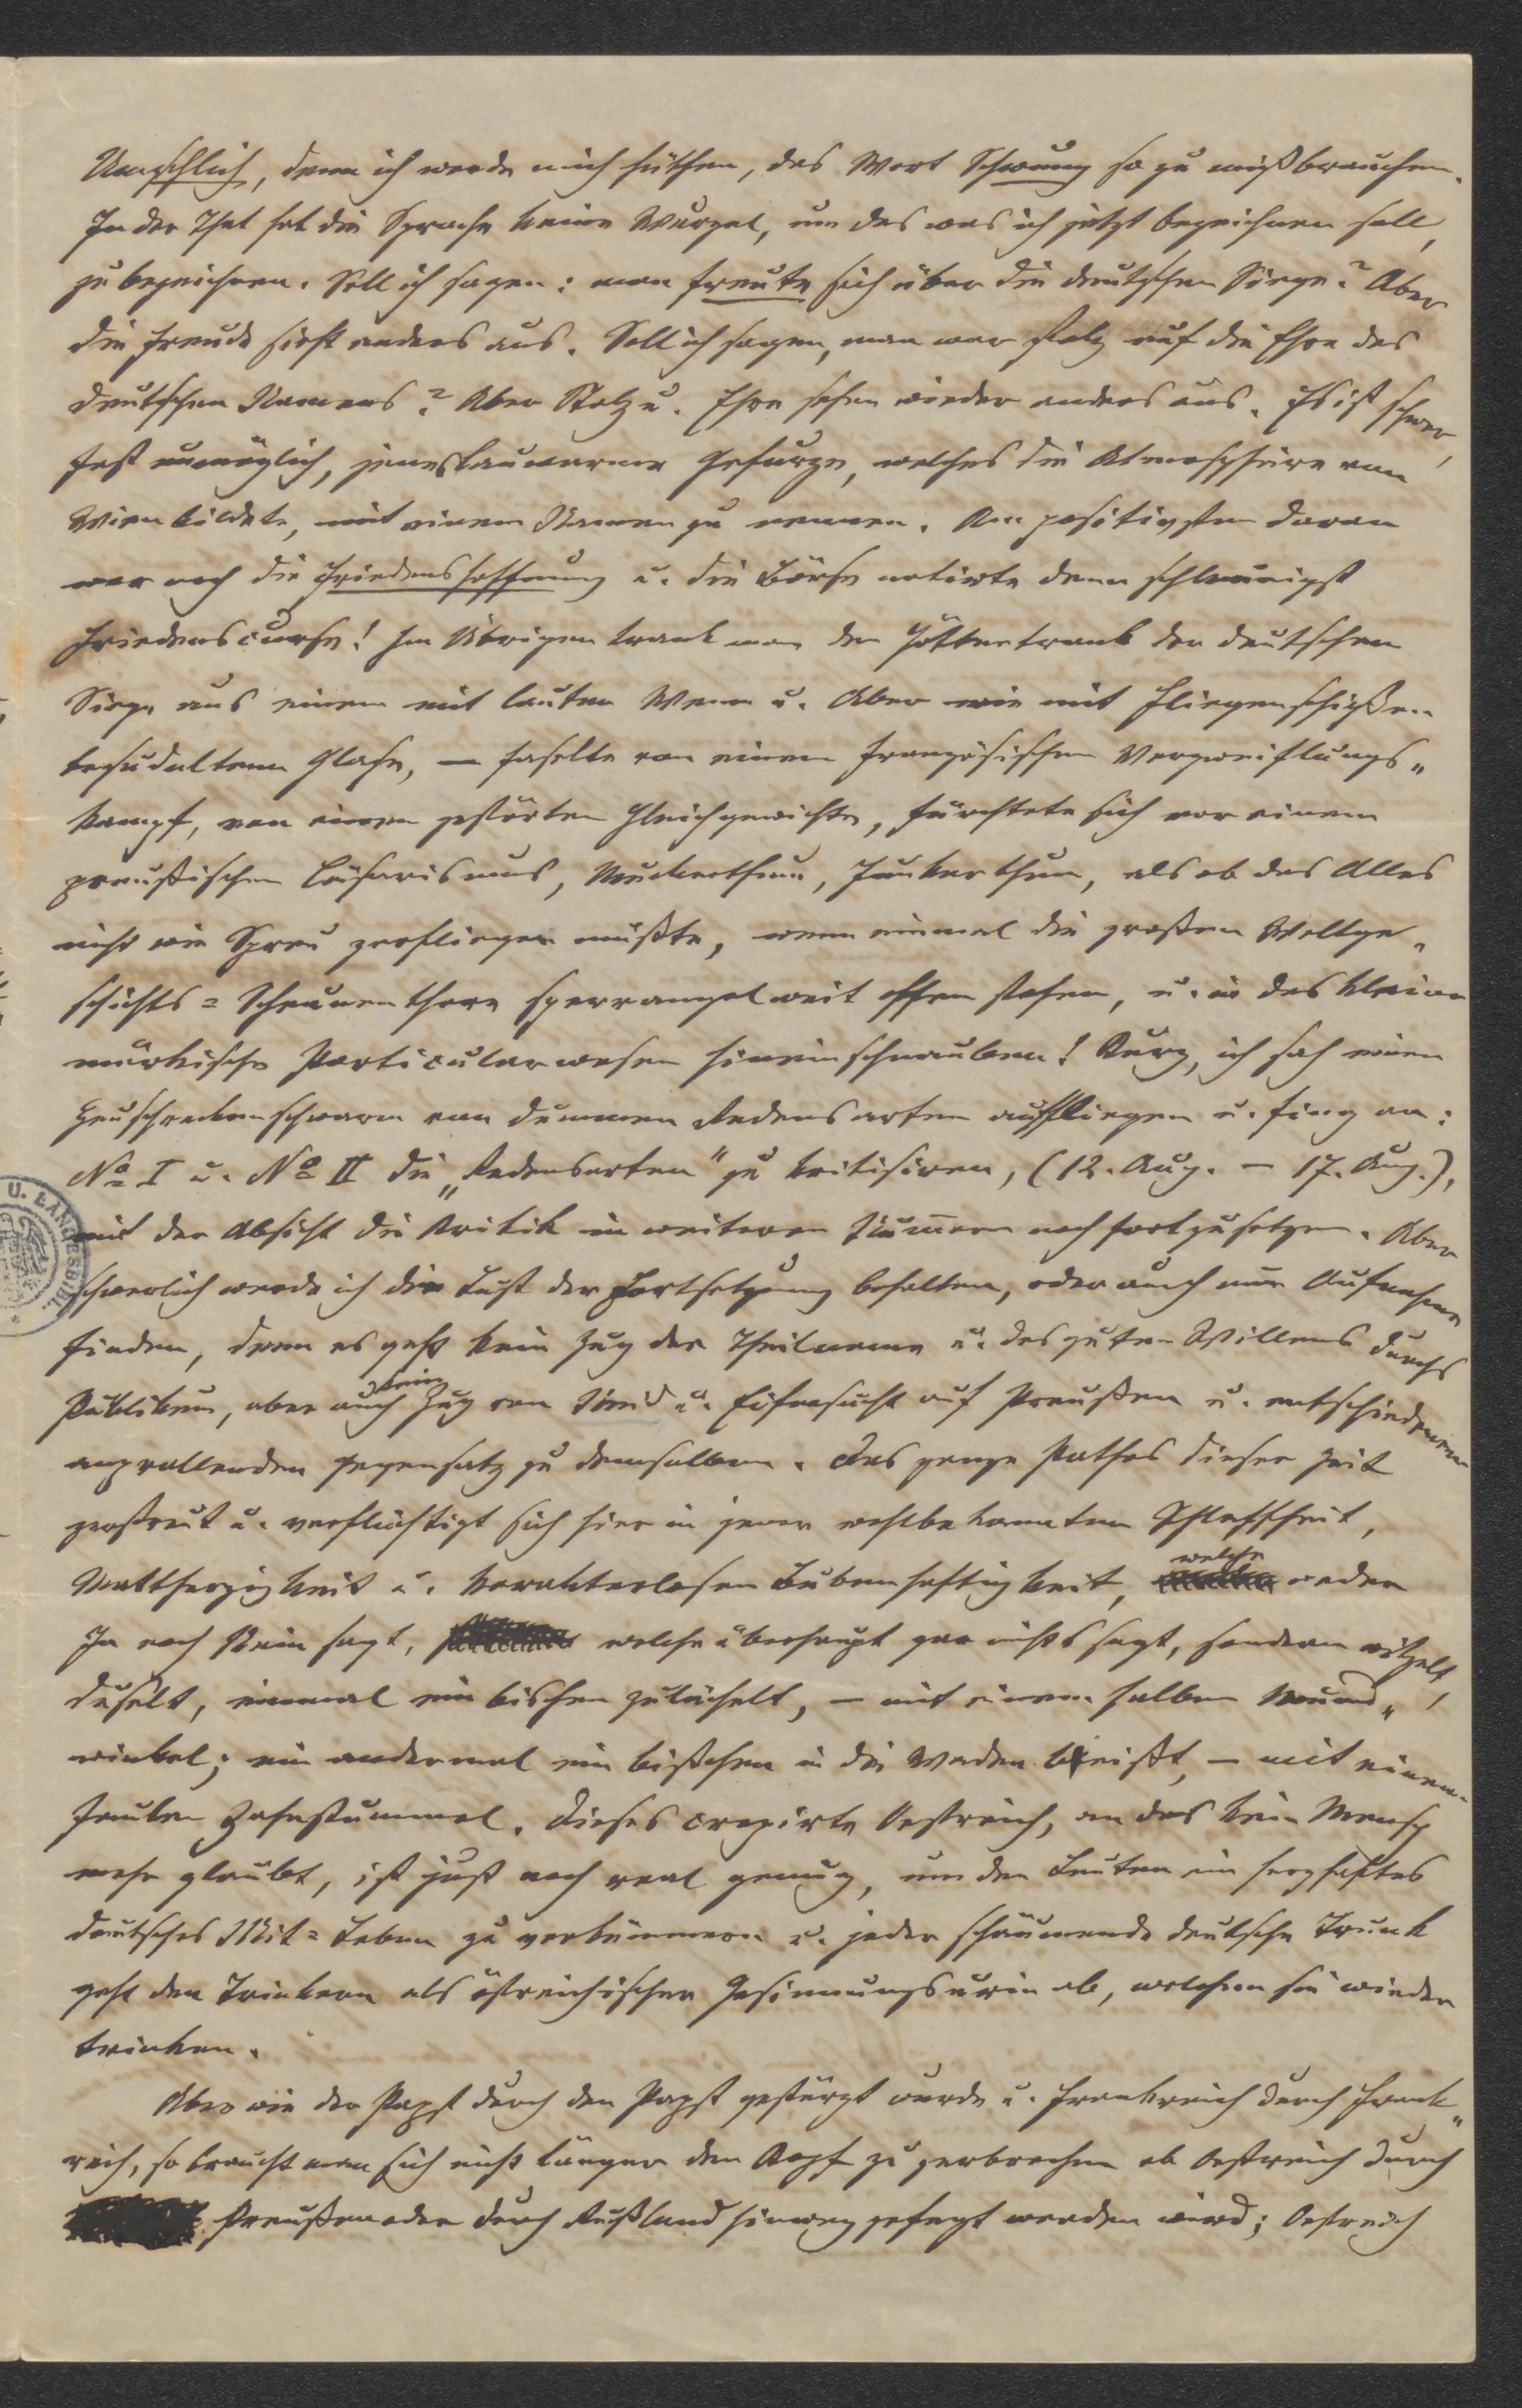 Umschlich, denn ich werde mich hüthen, das Wort Schwung so zu mißbrauchen.
In der That hat die Sprache keine Wurzel, um das was ich jetzt bezeichnen soll,
zu bezeichnen. Soll ich sagen: man freute sich über die deutschen Siege? Aber
die Freude sieht anders aus. Soll ich sagen, man war stolz auf die Ehre des
deutschen Namens? Aber Stolz u. Ehre sehen wieder anders aus. Es ist schwer,
fast unmöglich, jenes lauwarme Gefurze, welches die Atmosphäre von
Wien bildete, mit einem Namen zu nennen. Am positivsten daran
war noch die Friedenshoffnung u. die Börse notirte denn schleunigst
Friedenscurse! Im Übrigen trank man den Göttertrank der deutschen
Siege aus einem mit lauter Wenn u. Aber wie mit Fliegenschißen
besudeltem Glase, — faselte von einem französischen Verzweiflungs„
kampf, von einem gestörten Gleichgewichte, fürchtete sich vor einem
preußischen Cäsarismus, Muckerthum, Junkerthum, als ob das Alles
nicht wie Spreu zerfliegen müßte, wenn einmal die großen Weltge„
schichts=Scheunenthore sperrangelweit offen stehen, u. in das kleine
märkische Particularwesen hineinschnauben! Kurz, ich sah einen
Heuschreckenschwarm von dummen Redensarten auffliegen u. fing an:
No I u. No II die „Redensarten" zu kritisiren, (12. Aug. — 17. Aug.),
mit der Absicht die Kritik in weiteren Nummern noch fortzusetzen. Aber
schwerlich werde ich die Lust der Fortsetzung behalten, oder auch nur Aufnahme
finden, denn es geht kein Zug der Theilname u. des guten Willens durchs
Publikum, aber auch kein Zug von Neid u. Eifersucht auf Preußen u. entschiedenem
anprallenden Gegensatz zu demselben. Das ganze Pathos dieser Zeit
zerstreut u. verflüchtigt sich hier in jener wohlbekannten Schlaffheit,
Mattherzigkeit u. karakterlosen Bubenhaftigkeit, welche weder
Ja noch Nein sagt, welche überhaupt gar nichts sagt, sondern witzelt,
duselt, einmal ein bischen zulächelt, — mit einem halben Mund„
winkel; ein andermal ein bischen in die Waden beißt, — mit einem
faulen Zahnstummel. Dieses crepirte Oestreich, an das kein Mensch
mehr glaubt, ist just noch real genug, um den Leuten ein herzhaftes
deutsches Mit=Leben zu verkümmern u. jeder schäumende deutsche Trunk
geht den Trinkern als östreichischer Gesinnungsurin ab, welchen sie wieder
trinken.
Aber wie der Papst durch den Papst gestürzt wurde u. Frankreich durch Frank„
reich, so braucht man sich nicht länger den Kopf zu zerbrechen ob Oestreich durch
Preußen oder durch Rußland hinweggefegt werden wird; Oestreich